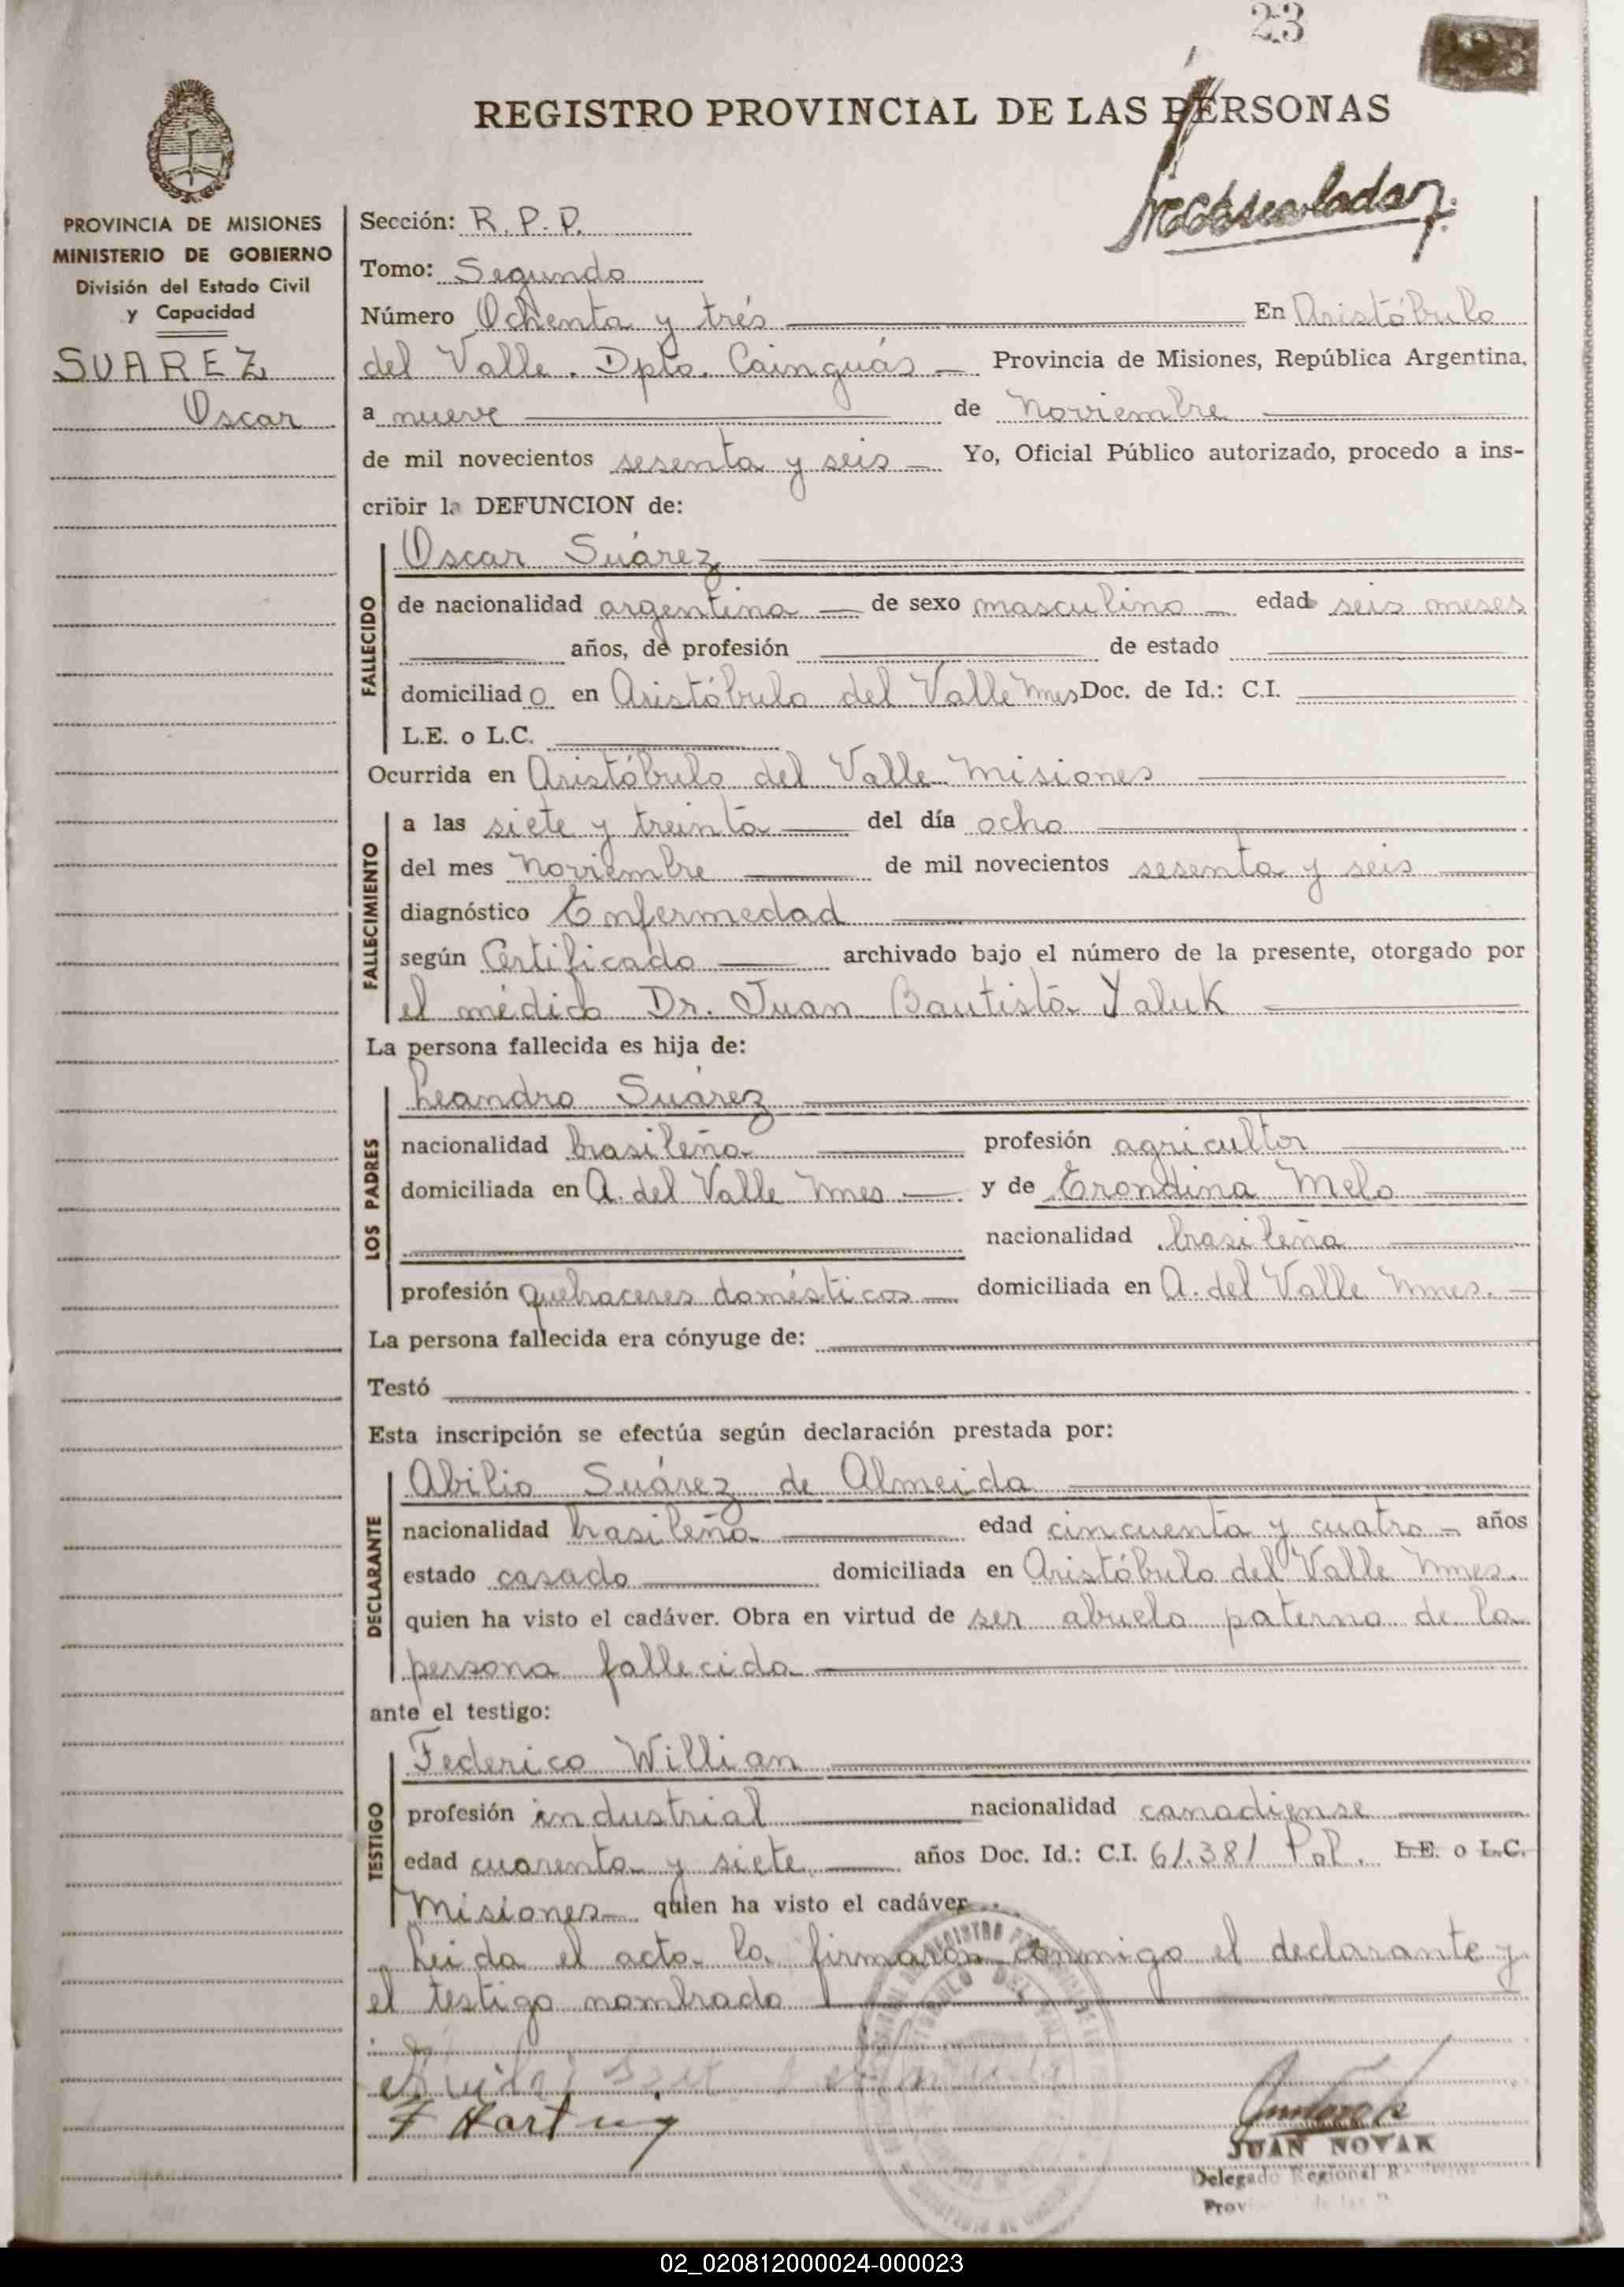 23
REGISTRO PROVINCIAL DE LAS PERSONAS
PROVINCIA DE MISIONES
MINISTERIO DE GOBIERNO
División del Estado Civil
y Capacidad
SUAREZ
Oscar
Sección: R. P. P.
Tomo: Segundo
Número Ochenta y trés En Aristóbulo
del Valle. Dpto. Cainguás Provincia de Misiones, República Argentina,
a nueve de Noviembre
de mil novecientos sesenta y seis Yo, Oficial Público autorizado, procedo a ins-
cribir la DEFUNCION de:
FALLECIDO
Oscar Suárez
de nacionalidad argentina de sexo masculino edad seis meses
años, de profesión de estado
domiciliado en Aristóbulo del Valle Mnes Doc. de Id.: C.I.
L.E. o L.C.
Ocurrida en Aristóbulo del Valle Misiones
FALLECIMIENTO
a las siete y treinta del día ocho
del mes Noviembre de mil novecientos sesenta y seis
diagnóstico Enfermedad
según Certificado archivado bajo el número de la presente, otorgado por
el médico Dr. Juan Bautista Yaluk
La persona fallecida es hija de:
LOS PADRES
Leandro Suárez
nacionalidad brasileña profesión agricultor
domiciliada en A. del Valle Mnes y de Erondina Melo
nacionalidad brasileña
profesión quehaceres domésticos domiciliada en A. del Valle Mnes.
La persona fallecida era cónyuge de:
Testó
Esta inscripción se efectúa según declaración prestada por:
DECLARANTE
Abilio Suárez de Almeida
nacionalidad brasileña edad cincuenta y cuatro años
estado casado domiciliada en Aristóbulo del Valle Mnes.
quien ha visto el cadáver. Obra en virtud de ser abuelo paterno de la
persona fallecida
ante el testigo:
TESTIGO
Federico Willian
profesión industrial nacionalidad canadiense
edad cuarenta y siete años Doc. Id.: C.I. 61.381 Pol. L.E. o L.C.
Misiones quien ha visto el cadáver
Leida el acta la firmaron conmigo el declarante y
el testigo nombrado
F Hartwig
JUAN NOVAK
Delegado Regional
02_020812000024-000023